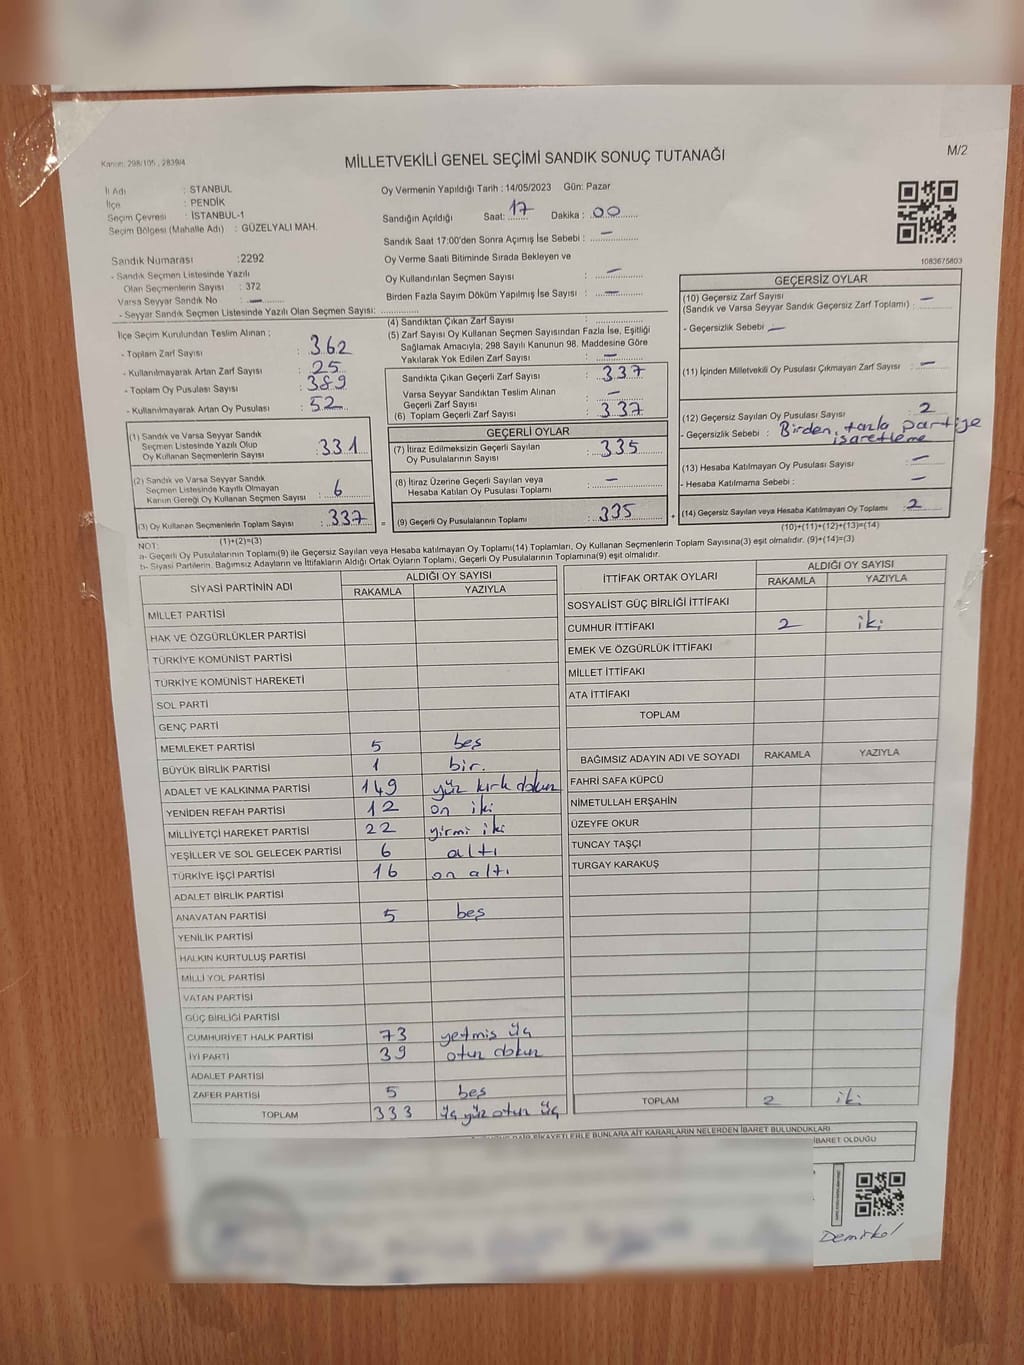 Kanun: 298/105 , 2839/4
MİLLETVEKİLİ GENEL SEÇİMİ SANDIK SONUÇ TUTANAĞI
M/2
İl Adı : STANBUL
İlçe : PENDİK
Seçim Çevresi : İSTANBUL-1
Seçim Bölgesi (Mahalle Adı) : GÜZELYALI MAH.
Oy Vermenin Yapıldığı Tarih : 14/05/2023 Gün: Pazar
Sandığın Açıldığı Saat: 17 Dakika : 00
Sandık Saat 17:00'den Sonra Açımış İse Sebebi : —
Oy Verme Saati Bitiminde Sırada Bekleyen ve
Oy Kullandırılan Seçmen Sayısı : —
Birden Fazla Sayım Döküm Yapılmış İse Sayısı : —
1083675803
Sandık Numarası :2292
- Sandık Seçmen Listesinde Yazılı
Olan Seçmenlerin Sayısı : 372
Varsa Seyyar Sandık No : —
- Seyyar Sandık Seçmen Listesinde Yazılı Olan Seçmen Sayısı:
İlçe Seçim Kurulundan Teslim Alınan ;
- Toplam Zarf Sayısı : 362
- Kullanılmayarak Artan Zarf Sayısı : 25
- Toplam Oy Pusulası Sayısı : 389
- Kullanılmayarak Artan Oy Pusulası : 52
(1) Sandık ve Varsa Seyyar Sandık
Seçmen Listesinde Yazılı Olup
Oy Kullanan Seçmenlerin Sayısı : 331
(2) Sandık ve Varsa Seyyar Sandık
Seçmen Listesinde Kayıtlı Olmayan
Kanun Gereği Oy Kullanan Seçmen Sayısı : 6
(3) Oy Kullanan Seçmenlerin Toplam Sayısı : 337
(1)+(2)=(3)
(4) Sandıktan Çıkan Zarf Sayısı :
(5) Zarf Sayısı Oy Kullanan Seçmen Sayısından Fazla İse, Eşitliği
Sağlamak Amacıyla; 298 Sayılı Kanunun 98. Maddesine Göre
Yakılarak Yok Edilen Zarf Sayısı : —
Sandıkta Çıkan Geçerli Zarf Sayısı : 337
Varsa Seyyar Sandıktan Teslim Alınan
Geçerli Zarf Sayısı : —
(6) Toplam Geçerli Zarf Sayısı : 337
GEÇERLİ OYLAR
(7) İtiraz Edilmeksizin Geçerli Sayılan
Oy Pusulalarının Sayısı : 335
(8) İtiraz Üzerine Geçerli Sayılan veya
Hesaba Katılan Oy Pusulası Toplamı : —
= (9) Geçerli Oy Pusulalarının Toplamı : 335 +
GEÇERSİZ OYLAR
(10) Geçersiz Zarf Sayısı
(Sandık ve Varsa Seyyar Sandık Geçersiz Zarf Toplamı) : —
- Geçersizlik Sebebi : —
(11) İçinden Milletvekili Oy Pusulası Çıkmayan Zarf Sayısı : —
(12) Geçersiz Sayılan Oy Pusulası Sayısı : 2
- Geçersizlik Sebebi : Birden, fazla partiye
işaretleme
(13) Hesaba Katılmayan Oy Pusulası Sayısı : —
- Hesaba Katılmama Sebebi : —
(14) Geçersiz Sayılan veya Hesaba Katılmayan Oy Toplamı : 2
(10)+(11)+(12)+(13)=(14)
NOT:
a- Geçerli Oy Pusulalarının Toplamı(9) ile Geçersiz Sayılan veya Hesaba katılmayan Oy Toplamı(14) Toplamları, Oy Kullanan Seçmenlerin Toplam Sayısına(3) eşit olmalıdır. (9)+(14)=(3)
b- Siyasi Partilerin, Bağımsız Adayların ve İttifakların Aldığı Ortak Oyların Toplamı, Geçerli Oy Pusulalarının Toplamına(9) eşit olmalıdır.
SİYASİ PARTİNİN ADI ALDIĞI OY SAYISI
RAKAMLA YAZIYLA
MİLLET PARTİSİ
HAK VE ÖZGÜRLÜKLER PARTİSİ
TÜRKİYE KOMÜNİST PARTİSİ
TÜRKİYE KOMÜNİST HAREKETİ
SOL PARTİ
GENÇ PARTİ
MEMLEKET PARTİSİ 5 beş
BÜYÜK BİRLİK PARTİSİ 1 bir.
ADALET VE KALKINMA PARTİSİ 149 yüz kırk dokuz
YENİDEN REFAH PARTİSİ 12 on iki
MİLLİYETÇİ HAREKET PARTİSİ 22 yirmi iki
YEŞİLLER VE SOL GELECEK PARTİSİ 6 altı
TÜRKİYE İŞÇİ PARTİSİ 16 on altı
ADALET BİRLİK PARTİSİ
ANAVATAN PARTİSİ 5 beş
YENİLİK PARTİSİ
HALKIN KURTULUŞ PARTİSİ
MİLLİ YOL PARTİSİ
VATAN PARTİSİ
GÜÇ BİRLİĞİ PARTİSİ
CUMHURİYET HALK PARTİSİ 73 yetmiş üç
İYİ PARTİ 39 otuz dokuz
ADALET PARTİSİ
ZAFER PARTİSİ 5 beş
TOPLAM 333 üç yüz otuz üç
İTTİFAK ORTAK OYLARI ALDIĞI OY SAYISI
RAKAMLA YAZIYLA
SOSYALİST GÜÇ BİRLİĞİ İTTİFAKI
CUMHUR İTTİFAKI 2 iki
EMEK VE ÖZGÜRLÜK İTTİFAKI
MİLLET İTTİFAKI
ATA İTTİFAKI
TOPLAM
BAĞIMSIZ ADAYIN ADI VE SOYADI RAKAMLA YAZIYLA
FAHRİ SAFA KÜPCÜ
NİMETULLAH ERŞAHİN
ÜZEYFE OKUR
TUNCAY TAŞÇI
TURGAY KARAKUŞ
TOPLAM 2 iki
ŞİKAYETLERLE BUNLARA AİT KARARLARIN NELERDEN İBARET BULUNDUKLARI
İBARET OLDUĞU
Demirkol